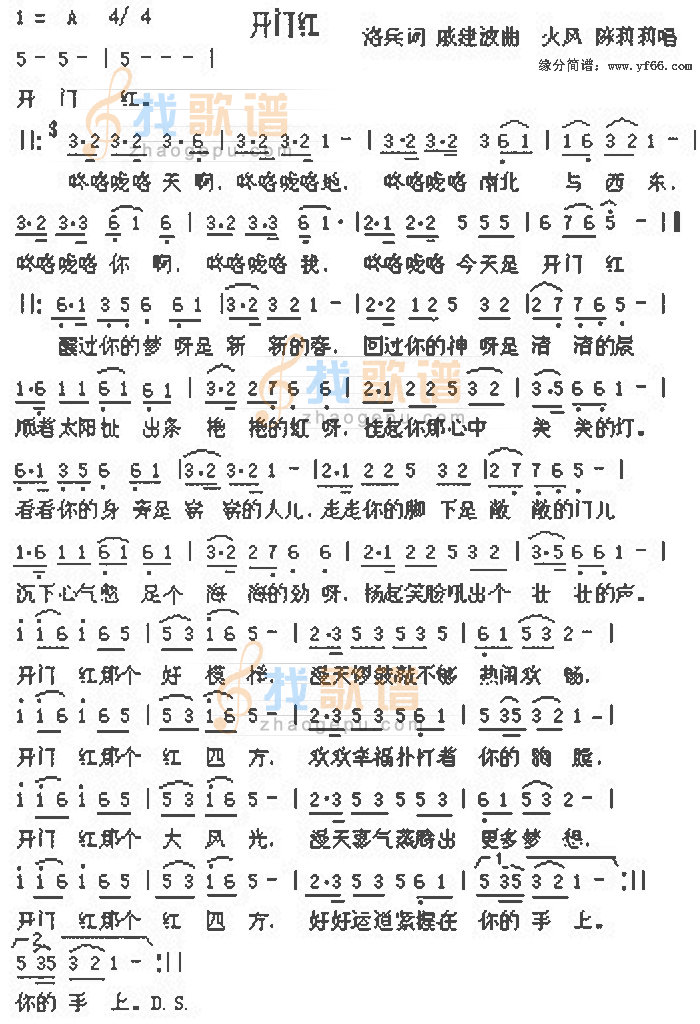 1 = A 4/4 开门红 洛兵词 戚建波曲 火风 陈莉莉唱
缘分简谱:www.yf66.com
5-5-|5---|
开 门 红。
找歌谱
zhaogepu.com
||: 3 3·2 3·2 3·6|3·2 3·2 1-|3·2 3·2 3 6 1|1 6 3 2 1-|
咚咯咙咯天啊,咚咯咙咯地, 咚咯咙咯南北 与西东,
3·2 3·3 6 1 6|3·2 3·3 6 1·|2·1 2·2 5 5 5|6 7 6 5-|
咚咯咙咯你 啊, 咚咯咙咯我, 咚咯咙咯今天是 开门 红
||: 6·1 3 5 6 6 1|3·2 3 2 1-|2·2 1 2 5 3 2|2 7 7 6 5-|
醒过你的梦呀是新 新的春, 回过你的神呀是清 清的晨
1·6 1 1 6 1 6 1|3·2 2 7 6 6|2·1 2 2 5 3 2|3·5 6 6 1-|
顺着太阳扯 出条 艳 艳的红呀, 挂起你那心中 美 美的灯。
6·1 3 5 6 6 1|3·2 3 2 1-|2·1 2 2 5 3 2|2 7 7 6 5-|
看看你的身旁是崭 崭的人儿,走走你的脚 下是敞 敞的门儿
1·6 1 1 6 1 6 1|3·2 2 7 6 6|2·1 2 2 5 3 2|3·5 6 6 1-|
沉下心气憋 足个 海 海的劲呀, 扬起笑脸吼出个 壮 壮的声。
i i 6 i 6 5|5 3 i 6 5-|2·3 5 3 5 3 5|6 1 5 3 2-|
开门 红那个 好 模 样, 漫天锣鼓敲不够 热闹欢 畅,
i i 6 i 6 5|5 3 i 6 5-|2·3 5 3 5 6 1|5 3 5 3 2 1-|
开门 红那个 红 四 方, 欢欢幸福扑打着 你的胸 膛,
i i 6 i 6 5|5 3 i 6 5-|2·3 5 3 5 5 5|6 1 5 3 2-|
开门 红那个 大 风 光, 漫天喜气蒸腾出 更多梦 想,
i i 6 i 6 5|5 3 i 6 5-|2·3 5 3 5 6 1|1 5 3 5 3 2 1-:||
开门 红那个 红 四 方, 好好运道紧握在 你的手 上。
2 5 3 5 3 2 1-:||
你的手 上。D.S.